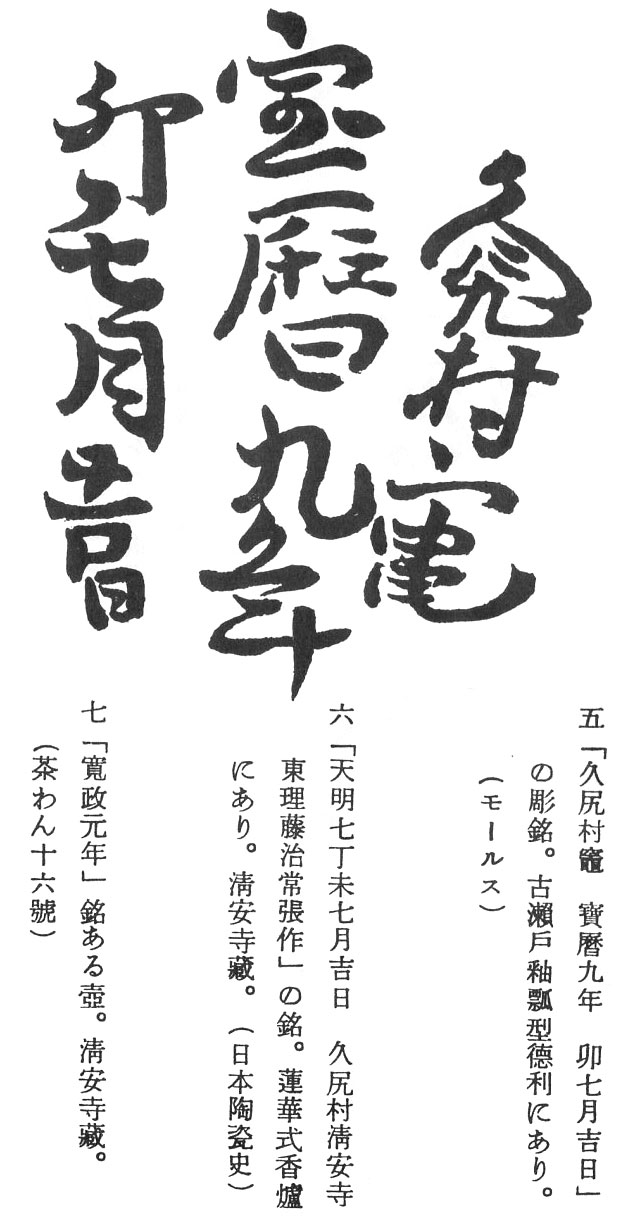 久尻村竃
宝暦九年
卯七月吉日
五「久尻村竈　寶曆九年　卯七月吉日」
の彫銘。古瀨戸釉瓢型德利にあり。
(モールス)
六「天明七丁未七月吉日　久尻村淸安寺
東理藤治常張作」の銘。蓮華式香爐
にあり。淸安寺藏。(日本陶瓷史)
七「寬政元年」銘ある壺。淸安寺藏。
(茶わん十六號)